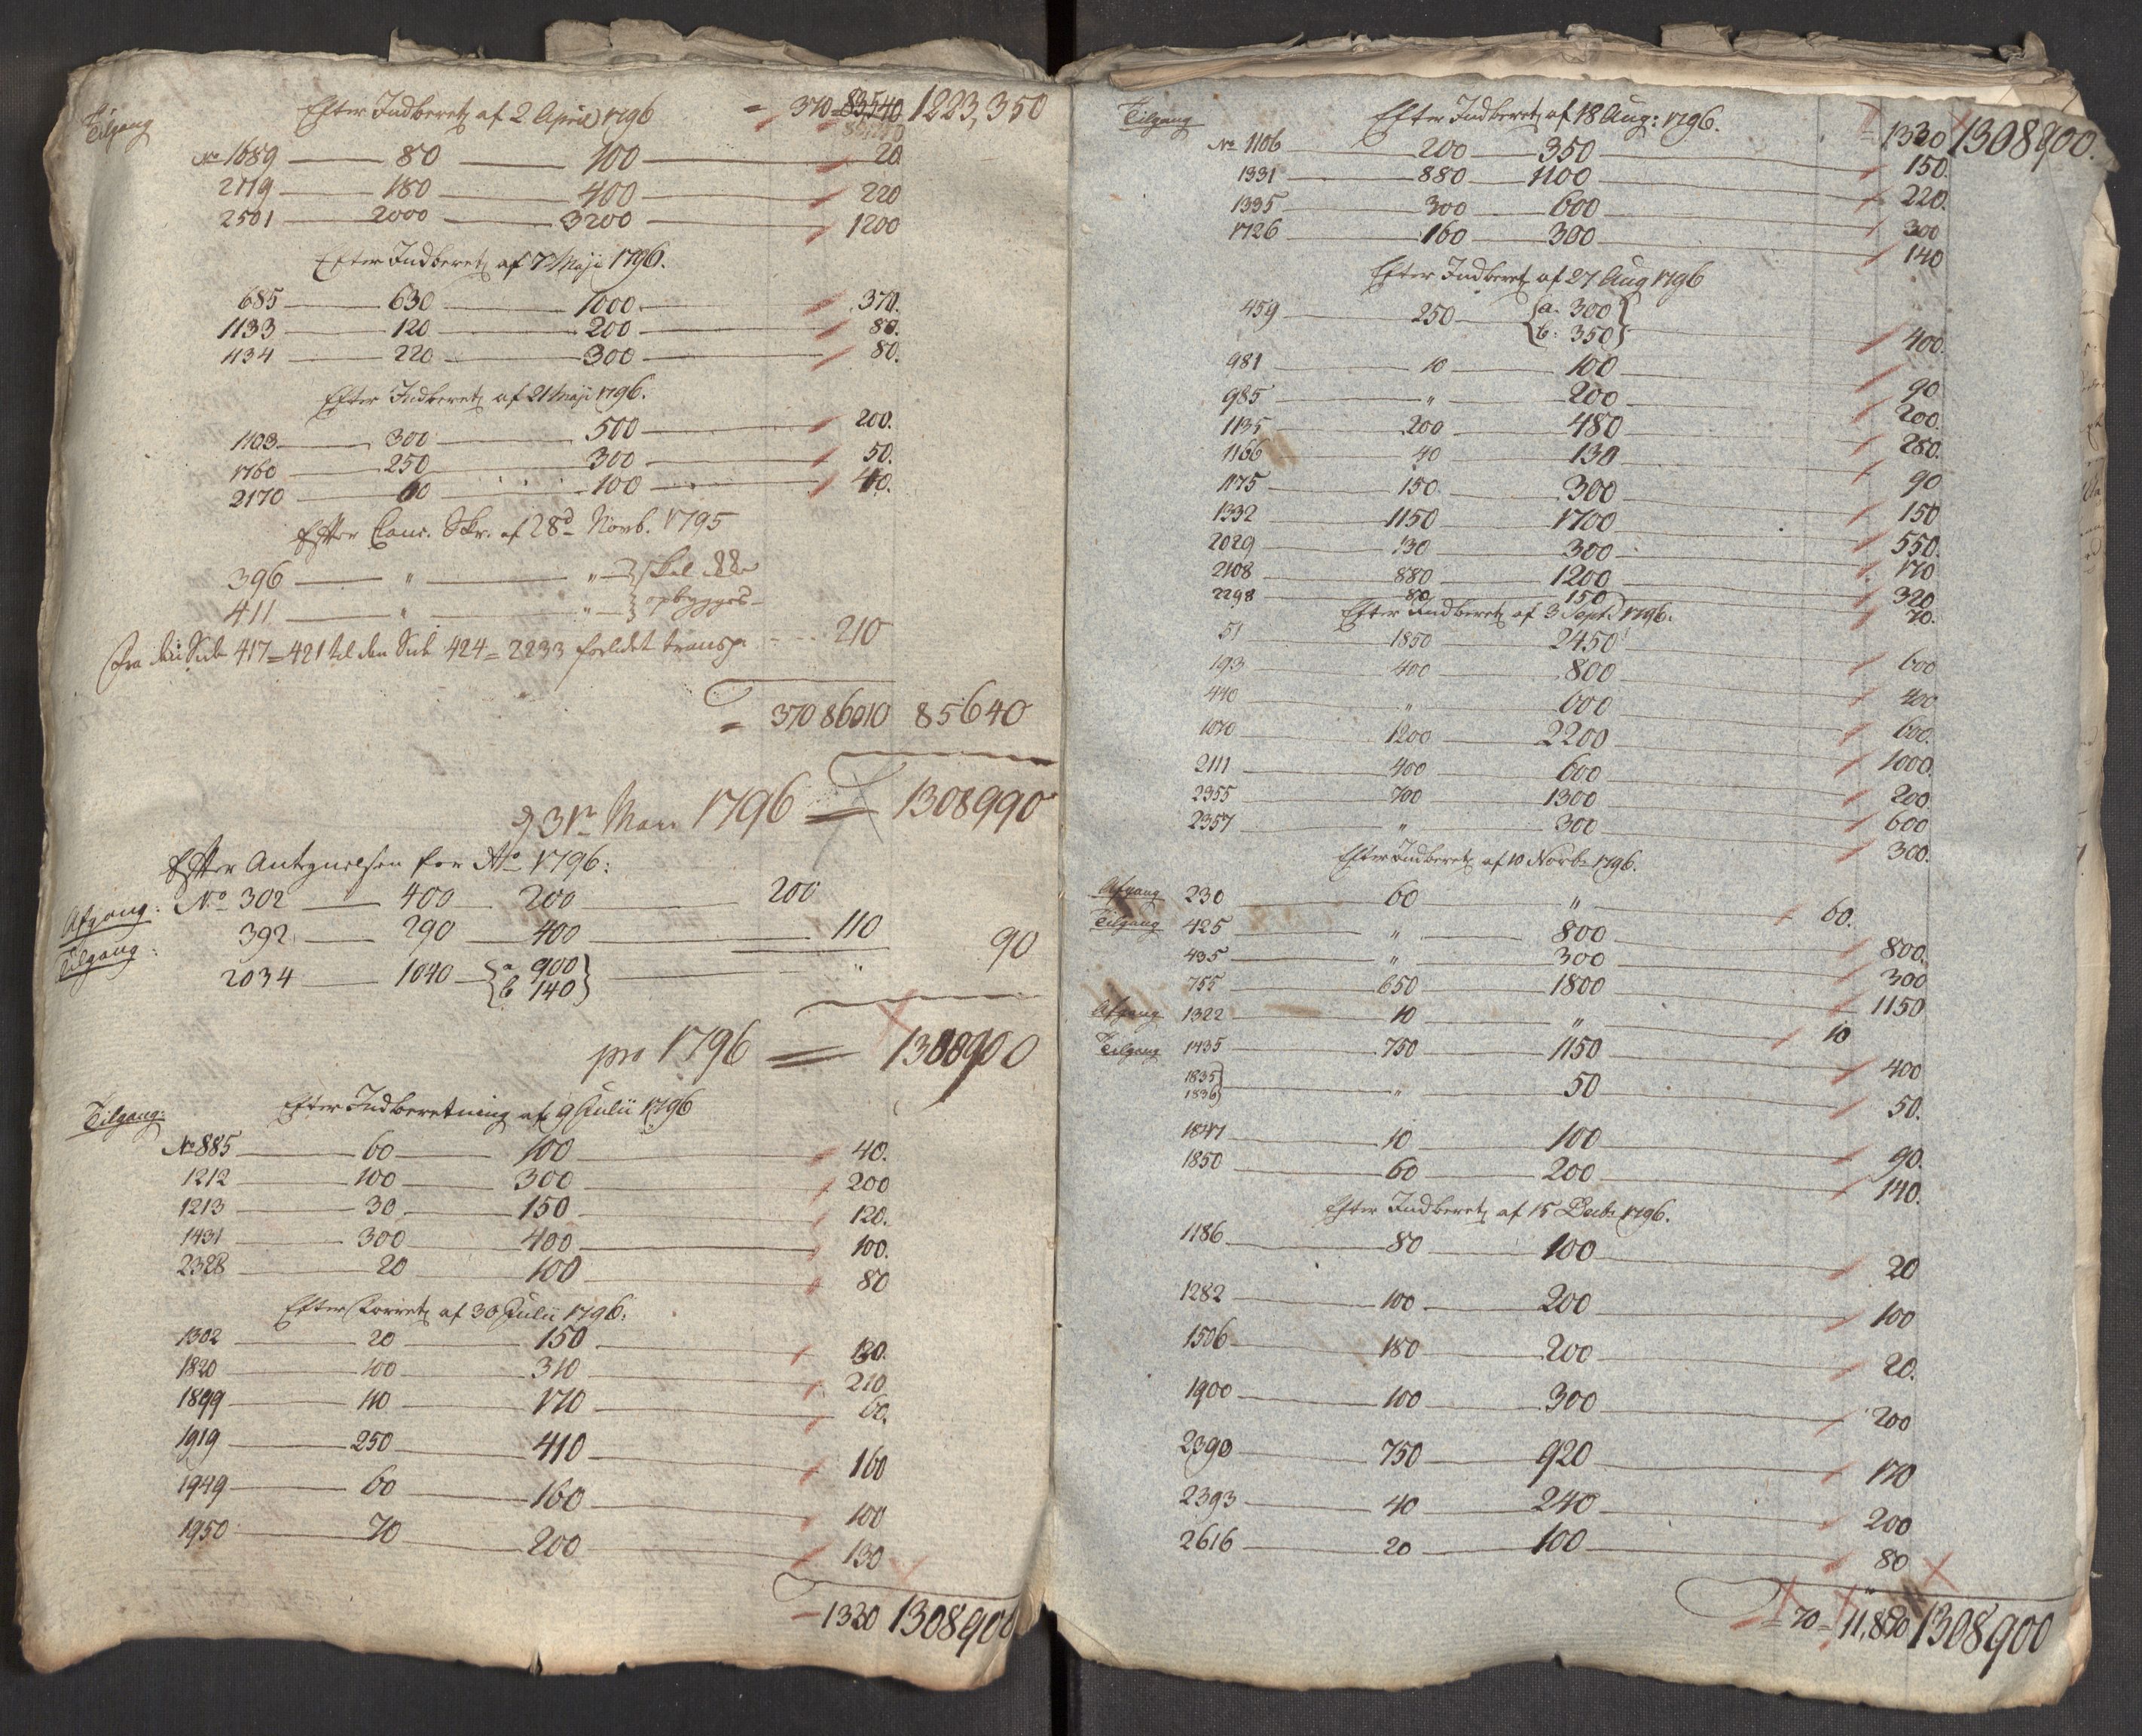 Tilgang Efter Indberetn af 2 April 1796 = 370 = 83540 1223,350
No 1689 — 80 — 100 — 20
2119 — 180 — 400 — 220
2501 — 2000 — 3200 — 1200
Efter Indberetn af 7 Maji 1796.
685 — 630 — 1000 — 370.
1133 — 120 — 200 — 80.
1134 — 220 — 300 — 80.
Efter Indberetn af 21 Maji 1796.
1103 — 300 — 500 — 200.
1760 — 250 — 300 — 50.
2170 — 60 — 100 — 40.
Efter Canc. Skr. af 28d Novb. 1795
396 — " — " — skal
411 — " — " — opbygges
Fra den Side 417 = 421 til den Side 424 = 2233 transp — 210
= 370 86010 85640
1796 = 1308990
Efter Antegnelsen for Ao 1796:
Afgang: No 302 — 400 — 200 — 200
Tilgang: 392 — 290 — 400 — 110 90
2034 — 1040 — {a 900 — "
{b 140}
pro 1796 = 1308900
Tilgang: Efter Indberetning af 9 Julii 1796
No 885 — 60 — 100 — 40.
1212 — 100 — 300 — 200
1213 — 30 — 150 — 120.
1431 — 300 — 400 — 100.
2328 — 20 — 100 — 80
Efter af 30 Julii 1796:
1302 — 20 — 150 — 130.
1820 — 100 — 310 — 210
1899 — 110 — 170 — 60.
1919 — 250 — 410 — 160
1949 — 60 — 160 — 100
1950 — 70 — 200 — 130
— 1330 1308900
Tilgang Efter Indberetn af 18 Aug: 1796. = 1330 1308900.
No 1106 — 200 — 350 — 150.
1331 — 880 — 1100 — 220.
1335 — 300 — 600 — 300
1726 — 160 — 300 — 140
Efter Indberetn af 27 Aug 1796
459 — 250 — {a. 300}
{b: 350} — 400.
981 — 10 — 100 — 90
985 — " — 200 — 200.
1135 — 200 — 480 — 280.
1166 — 40 — 130 — 90
1175 — 150 — 300 — 150
1332 — 1150 — 1700 — 550.
2029 — 130 — 300 — 170
2108 — 880 — 1200 — 320
2298 — 80 — 150 — 70.
Efter Indberetn af 3 Sept: 1796.
51 — 1850 — 2450 — 600
193 — 400 — 800 — 400
440 — " — 600 — 600.
1070 — 1200 — 2200 — 1000.
2111 — 400 — 600 — 200
2355 — 700 — 1300 — 600
2357 — " — 300 — 300.
Efter Indberetn af 10 Novb: 1796.
Afgang 230 — 60 — " — 60.
Tilgang 425 — " — 800 — 800.
435 — " — 300 — 300
755 — 650 — 1800 — 1150
Afgang 1322 — 10 — " — 10
Tilgang 1435 — 750 — 1150 — 400
1835}
1836} — " — 50 — 50.
1847 — 10 — 100 — 90.
1850 — 60 — 200 — 140.
Efter Indberetn af 15 Decbr 1796.
1186 — 80 — 100 — 20
1282 — 100 — 200 — 100
1506 — 180 — 200 — 20.
1900 — 100 — 300 — 200
2390 — 750 — 920 — 170
2393 — 40 — 240 — 200
2616 — 20 — 100 — 80
= 70 = 11,870 1308900